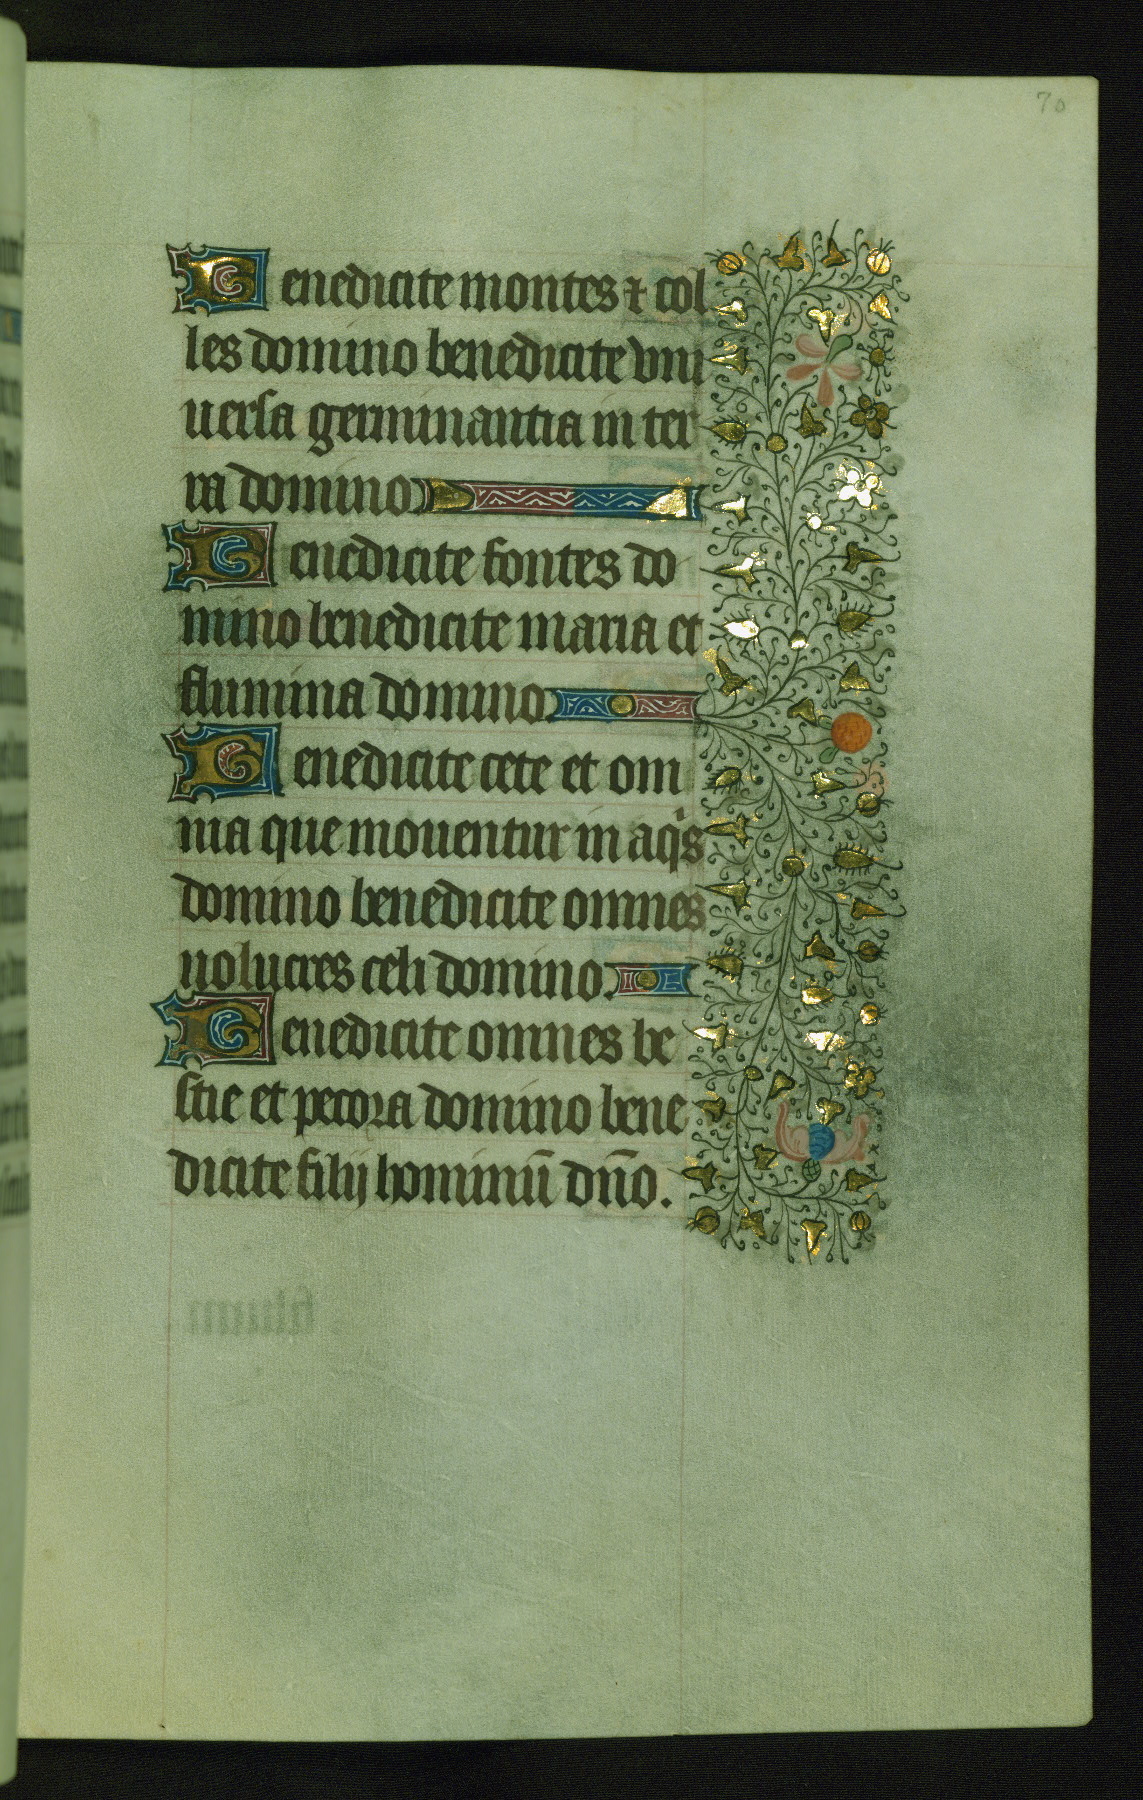 70
Benedicite montes ⁊ col
les domino benedicite vni
uersa germinantia in ter
ra domino.
Benedicite fontes do
mino benedicite maria et
flumina domino.
Benedicite cete et om
nia que mouentur in aqͥs
domino benedicite omnes
uolucres celi domino.
Benedicite omnes be
stie et pecora domino bene
dicite filij hominū dn̄o.